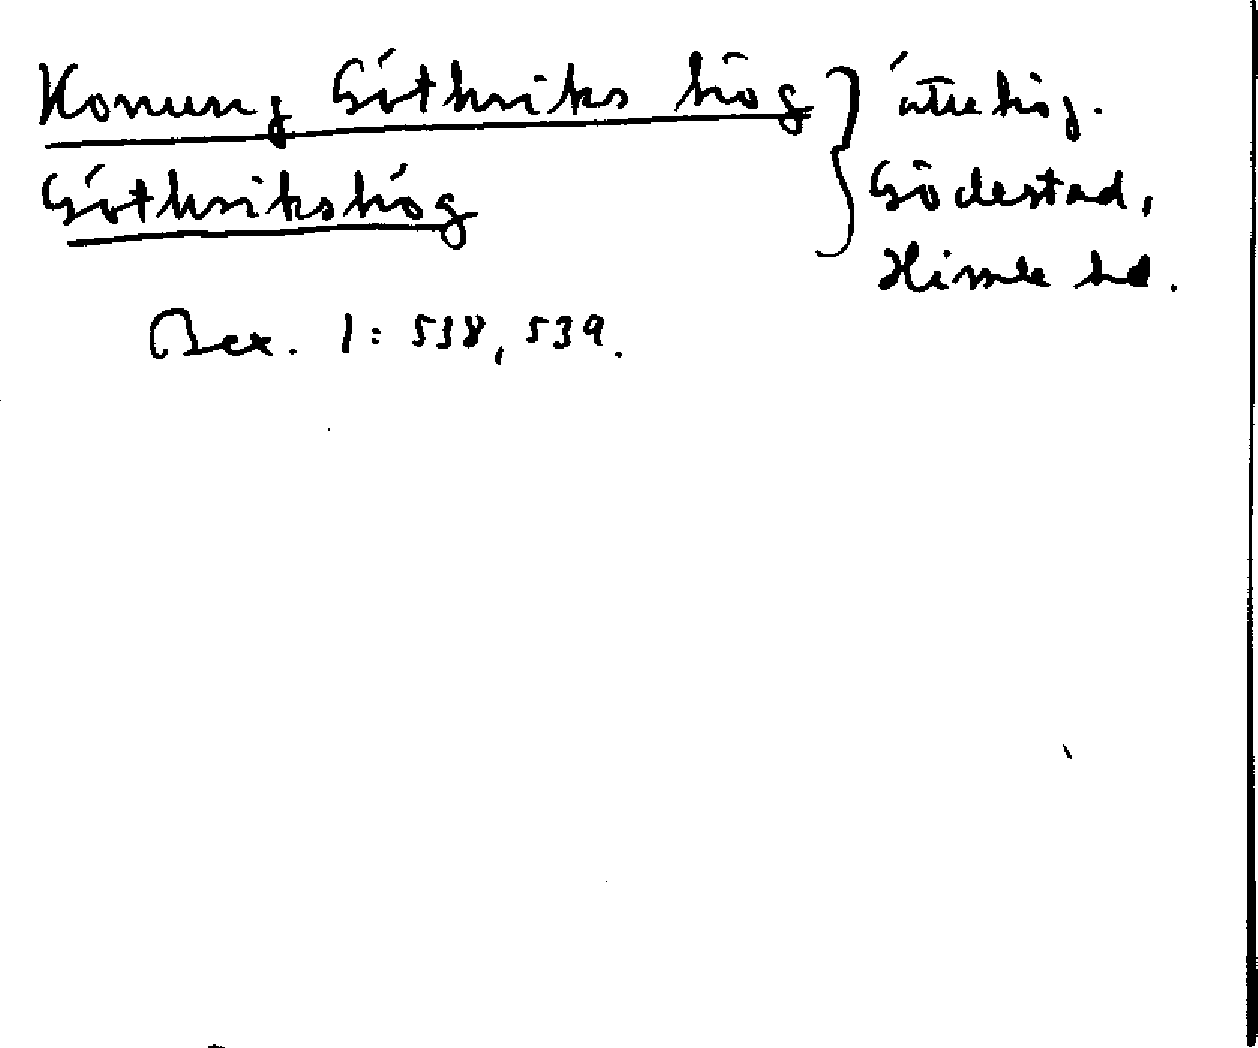 Konung Göthriks hög
Göthrikshög
ättehög.
Gödestad,
Himle hd.
Bex. 1: 538, 539.